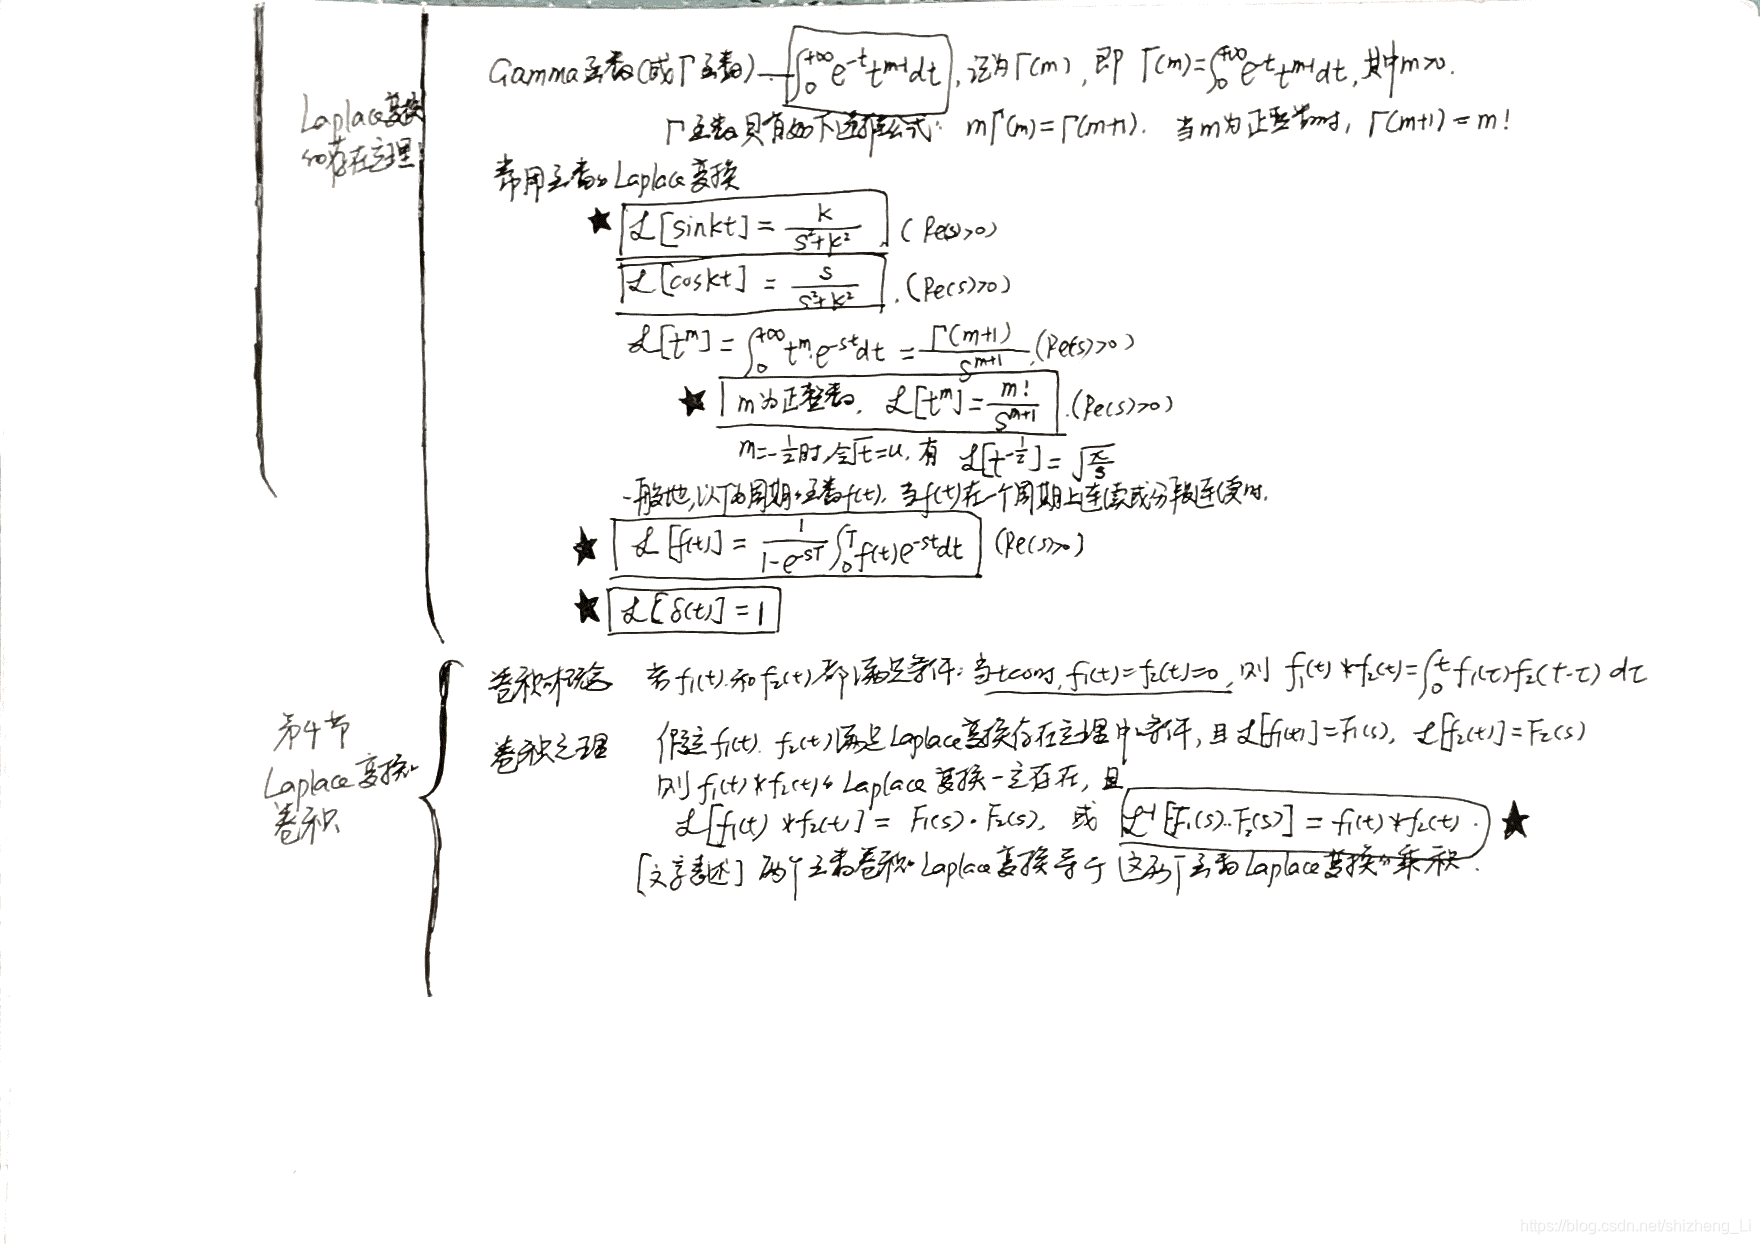 Gamma函数(或Γ函数) — ∫₀^{+∞} e^{-t} t^{m-1} dt, 记为Γ(m), 即 Γ(m)=∫₀^{+∞} e^{-t} t^{m-1} dt, 其中m>0.
Laplace变换
的存在定理
Γ函数具有如下递推公式: mΓ(m)=Γ(m+1). 当m为正整数时, Γ(m+1)=m!
常用函数的Laplace变换
★ ℒ[sinkt] = k/(s²+k²) (Re(s)>0)
ℒ[coskt] = s/(s²+k²). (Re(s)>0)
ℒ[t^m] = ∫₀^{+∞} t^m·e^{-st}dt = Γ(m+1)/s^{m+1}. (Re(s)>0)
★ m为正整数, ℒ[t^m] = m!/s^{m+1}. (Re(s)>0)
m=-1/2时, 令√t=u, 有 ℒ[t^{-1/2}] = √(π/s)
一般地, 以T为周期的函数f(t), 当f(t)在一个周期上连续或分段连续时.
★ ℒ[f(t)] = 1/(1-e^{-sT}) ∫₀^T f(t)e^{-st}dt (Re(s)>0)
★ ℒ[δ(t)] = 1
第4节
Laplace变换的
卷积
卷积的概念 若f₁(t).和f₂(t)都满足条件: 当t<0时, f₁(t)=f₂(t)=0, 则 f₁(t)*f₂(t)=∫₀^t f₁(τ)f₂(t-τ) dτ
卷积定理 假定f₁(t). f₂(t)满足Laplace变换存在定理中的条件, 且ℒ[f₁(t)]=F₁(s), ℒ[f₂(t)]=F₂(s)
则f₁(t)*f₂(t)的Laplace变换一定存在, 且
ℒ[f₁(t)*f₂(t)] = F₁(s)·F₂(s), 或 ℒ⁻¹[F₁(s)·F₂(s)] = f₁(t)*f₂(t). ★
[文字表述] 两个函数卷积的Laplace变换等于这两个函数Laplace变换的乘积.
https://blog.csdn.net/shizheng_Li